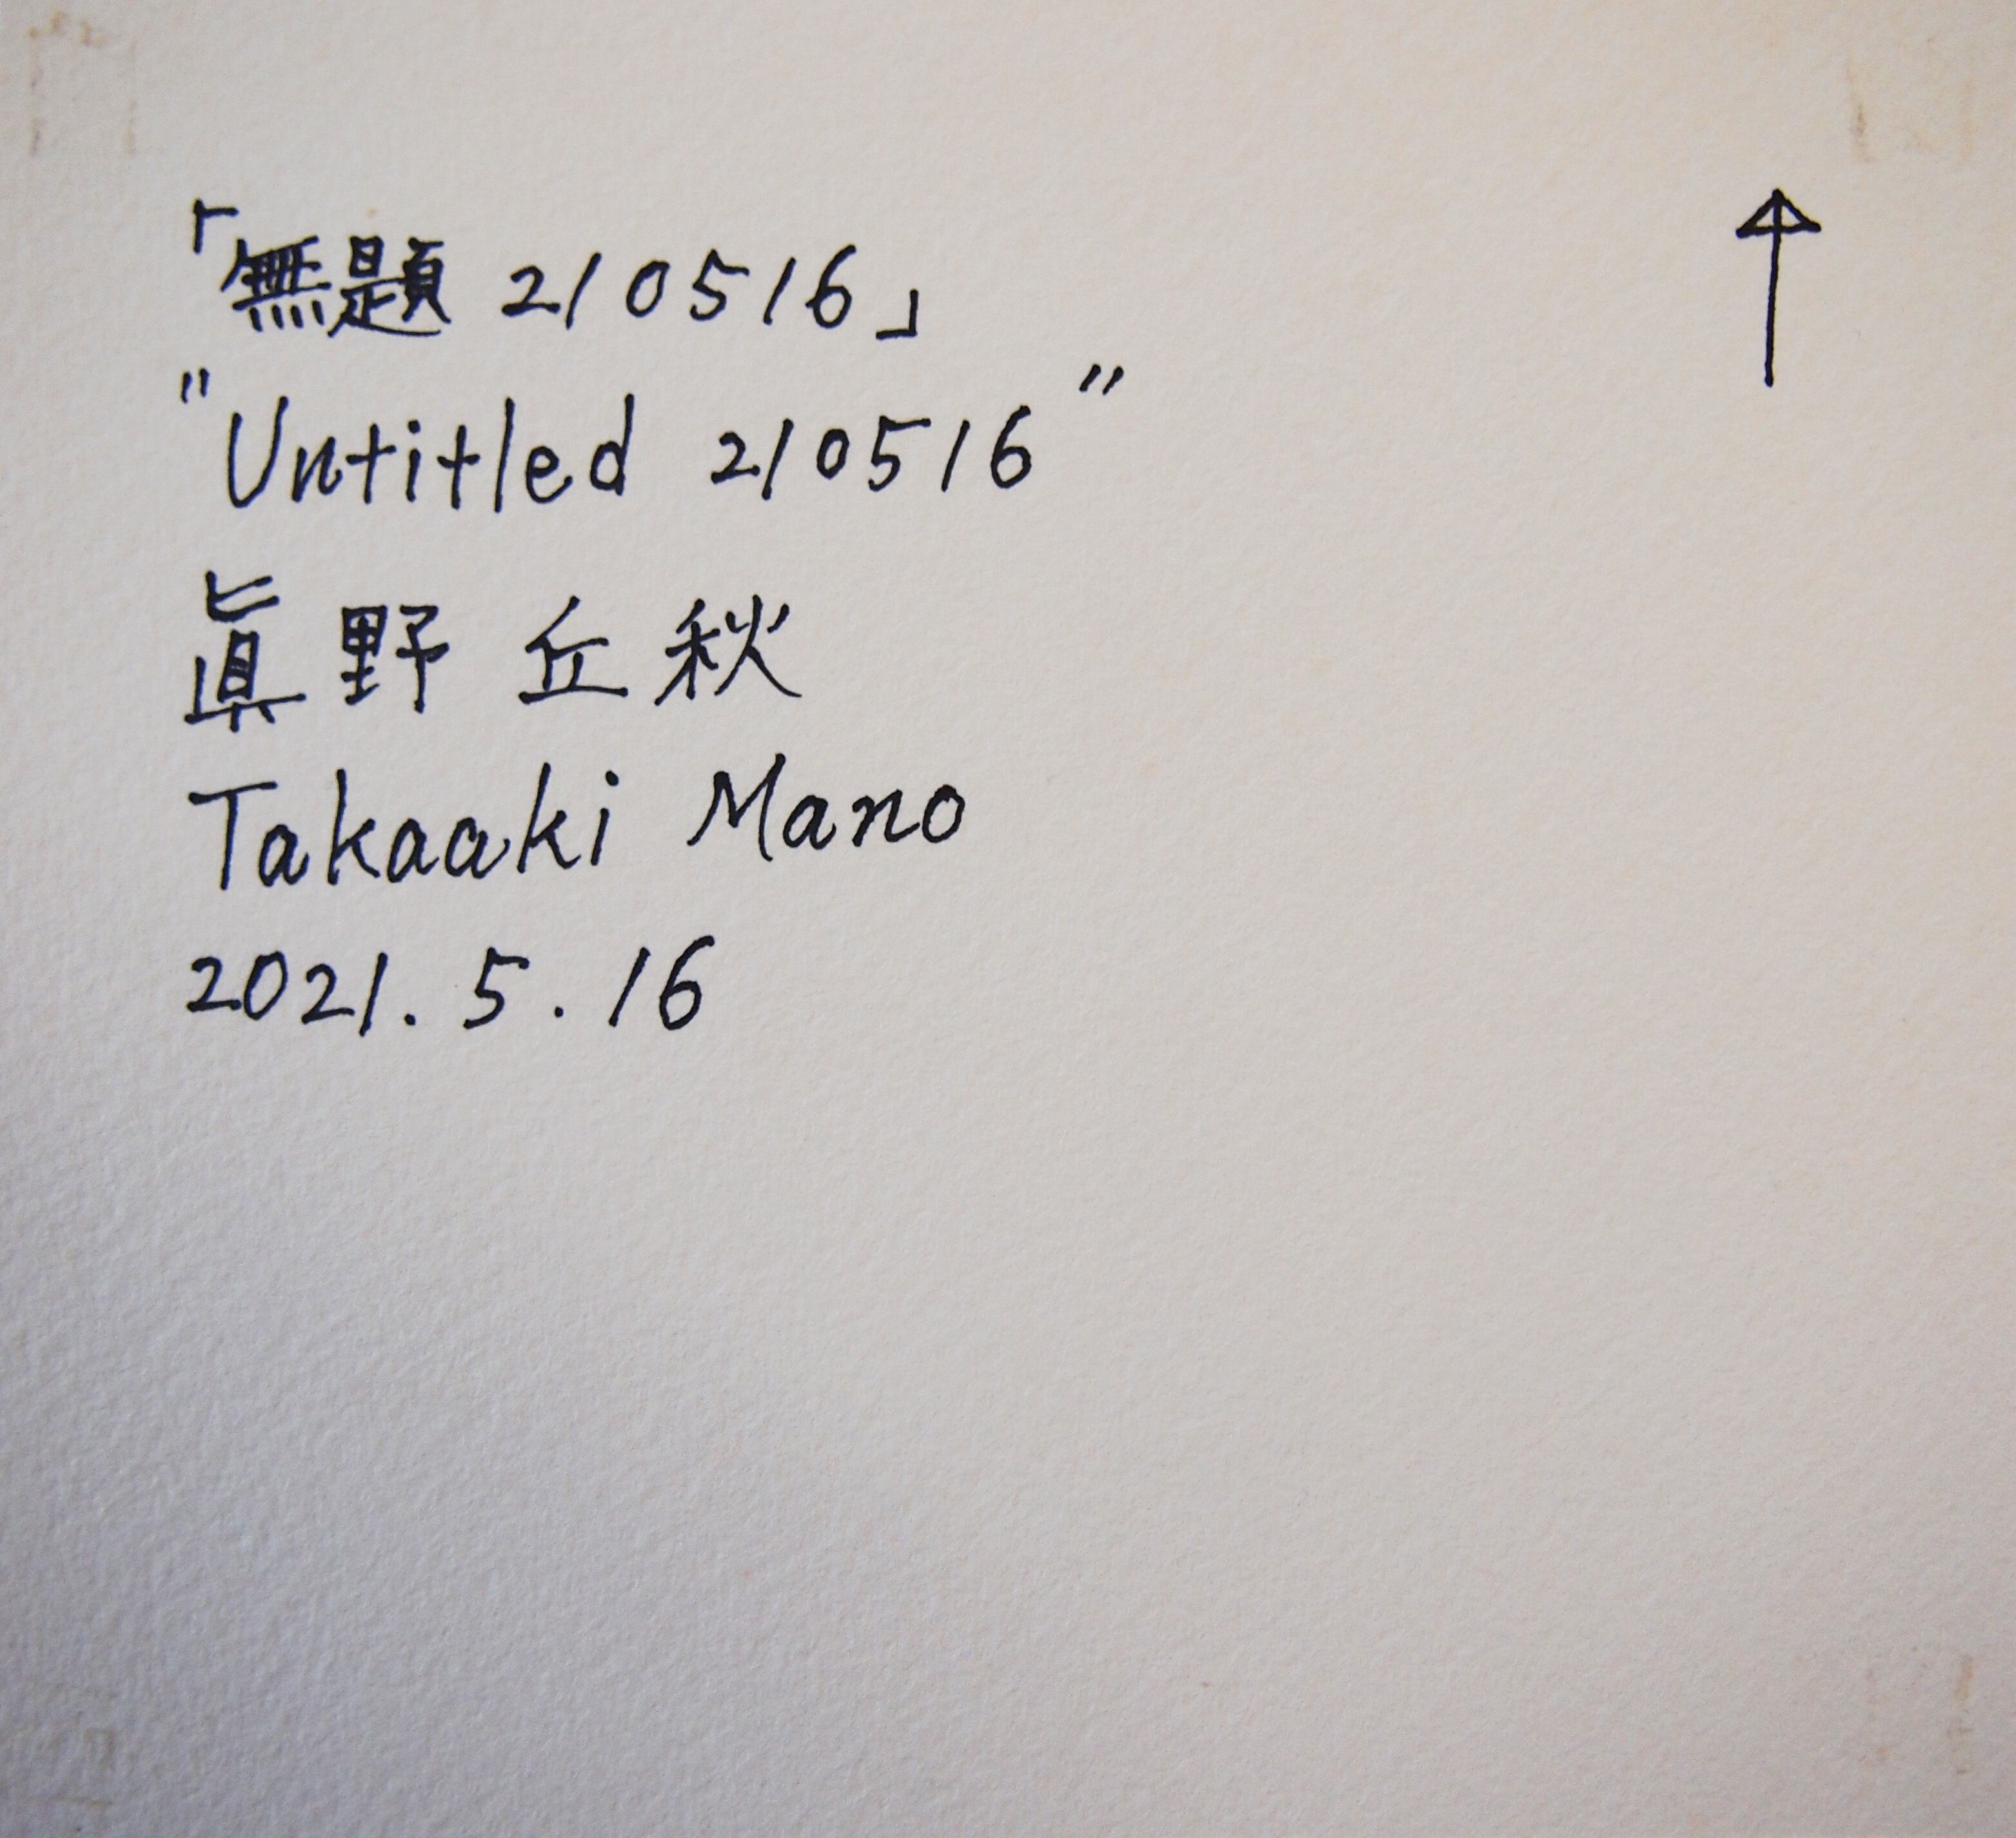 「無題 210516」
"Untitled 210516"
眞野 丘秋
Takaaki Mano
2021. 5. 16